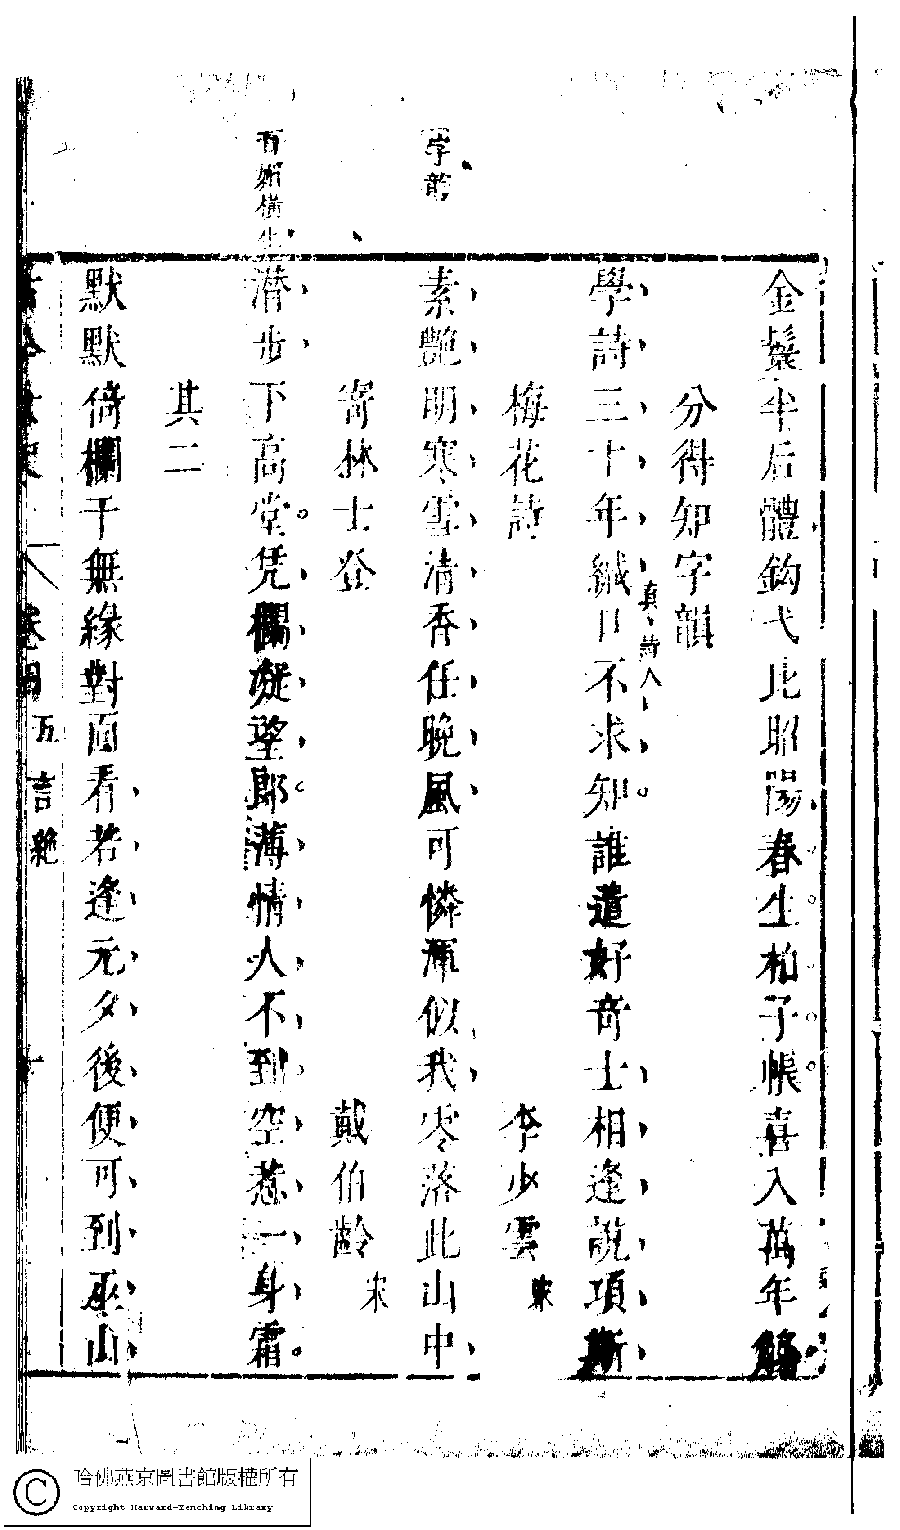 金鬟半后體鈎弋比昭陽春生柏子帳喜入萬年觴
分得知字韻
學詩三十年緘口不求知誰遣好奇士相逢說項斯
真詩人
梅花詩
李少雲
宋
素艷明寒雪清香任晚風可憐渾似我零落此山中
寄林士登
戴伯齡
宋
百媚橫生
潛步下高堂凭欄凝望郎薄情人不到空惹一身霜
其二
默默倚欄干無緣對面看若逢元夕後便可到巫山
卷四
五言絕
哈佛燕京圖書館版權所有
Copyright Harvard-Yenching Library